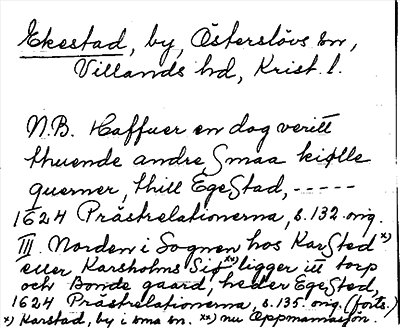 Ekestad, by, Österslövs sn,
Villands hd, Krist. l.
N.B. Haffuer en dog veritt
thuende andre Smaa keiølle
querner, thill EgeStad, -----
1624 Prästrelationerna, s. 132. orig.
III. Norden i Sognen hos KarSted x)
eller Karsholms Siø xx) ligger itt torp
och Bonde gaard, heder EgeStad,
1624 Prästrelationerna, s. 135. orig. (forts.)
x) Karstad, by i sma sn. xx) nu Oppmannasjön.